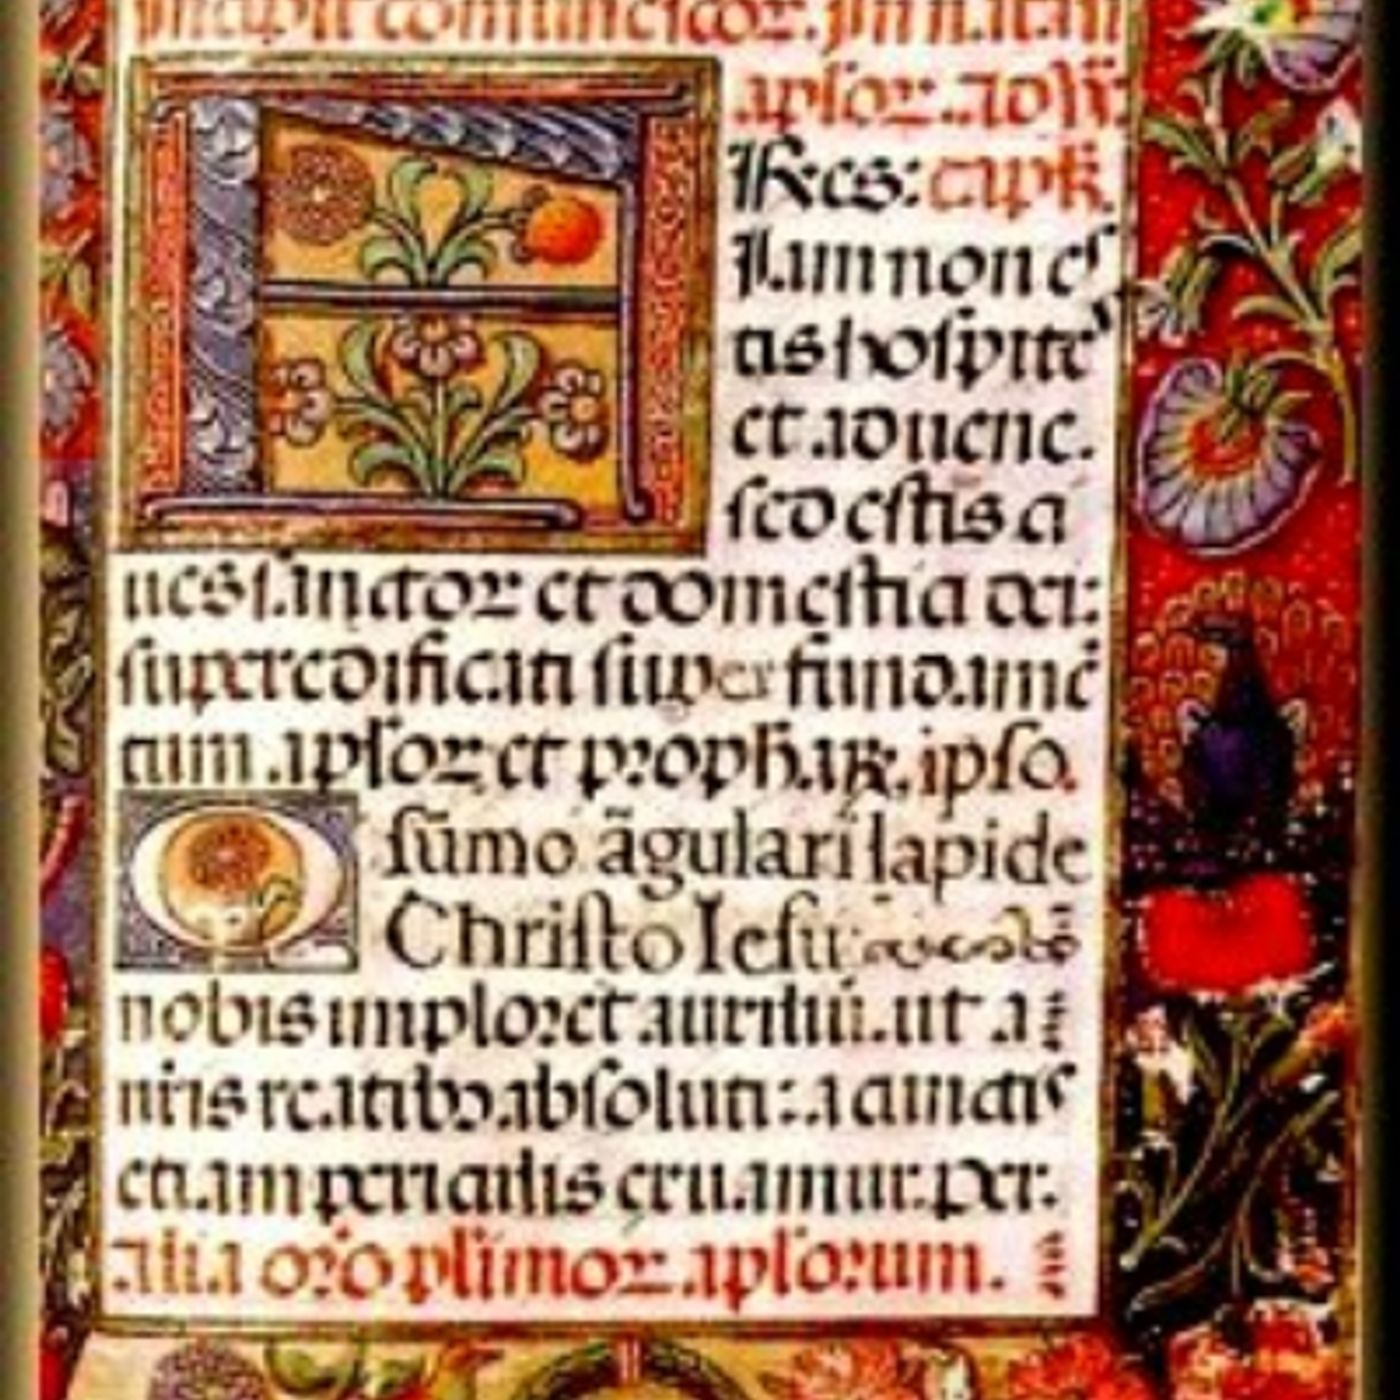 Incipit comunescoꝛ. In natali
aploꝝ. ad ep̄
Fr̄es: capl̄.
Iam non es
tis hospites
et aduene.
sed estis ci
ues sanctoꝝ et domestici dei:
superedificati super fundamē
tum aploꝝ et prophetaꝝ. ipso
sūmo āgulari lapide
Christo Iesu
nobis imploret auxiliū. ut a
nr̄is reatibꝫ absoluti: a cunctis
etiam periculis eruamur. per.
alia or̄o plīmoꝝ aplorum.